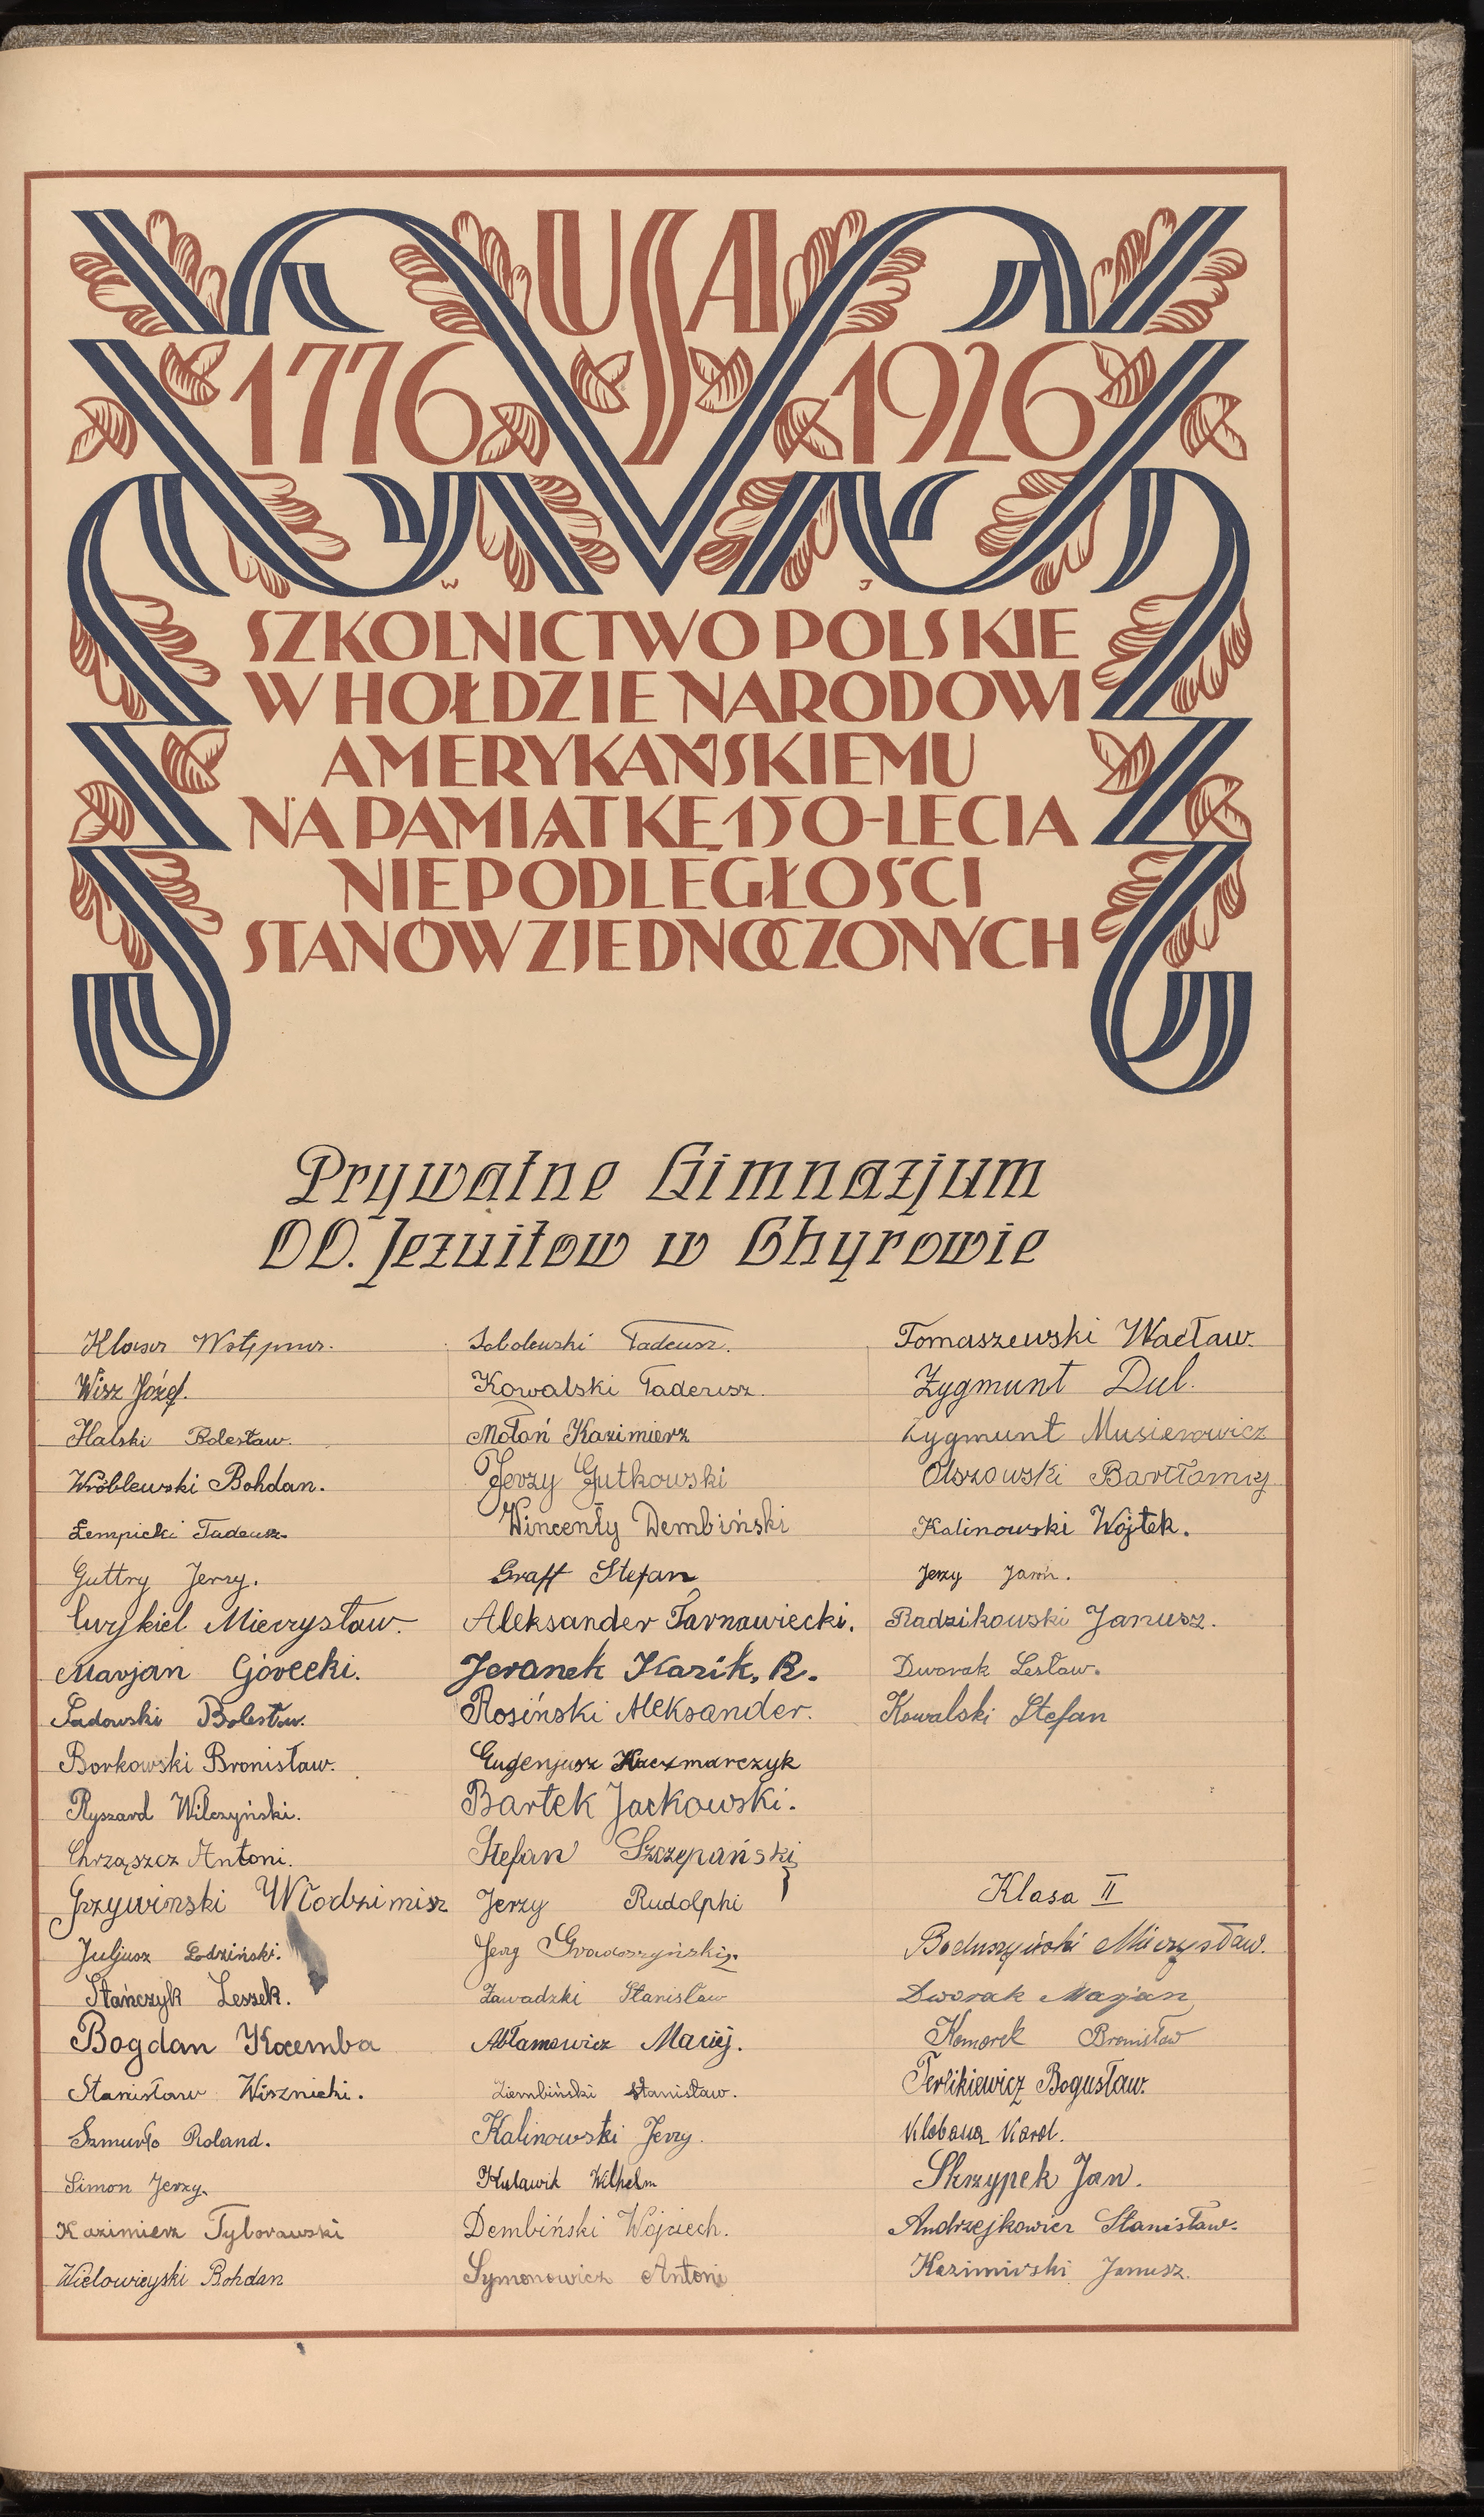 USA
1776 1926
W J
SZKOLNICTWO POLSKIE
W HOŁDZIE NARODOWI
AMERYKAŃSKIEMU
NA PAMIĄTKĘ 150-LECIA
NIEPODLEGŁOŚCI
STANÓW ZJEDNOCZONYCH
Prywatne Gimnazjum
OO. Jezuitow w Chyrowie
Klasa Wstępna.
Wisz Józef.
Halski Bolesław.
Wróblewski Bohdan.
Łempicki Tadeusz.
Guttry Jerzy.
Mieczysław.
Marjan Górecki.
Sadowski Bolesław.
Borkowski Bronisław.
Ryszard Wilczyński.
Chrząszcz Antoni.
Grzywiński Włodzimisz
Juljusz Łodziński.
Stańczyk Leszek.
Bogdan Kocemba
Stanisław Wisznicki.
Szmurło Roland.
Simon Jerzy.
Kazimierz Tyborawski
Wielowieyski Bohdan
Sobolewski Tadeusz.
Kowalski Tadeusz.
Mołoń Kazimierz
Jerzy Gutkowski
Wincenty Dembiński
Graff Stefan
Aleksander Tarnawiecki.
Jeranek Kazik. R.
Rosiński Aleksander.
Eugenjusz Kaczmarczyk
Bartek Jackowski.
Stefan Szczepański
Jerzy Rudolphi
Jerzy
Zawadzki Stanisław
Abłamowicz Maciej.
Ziembiński Stanisław.
Kalinowski Jerzy.
Kulawik Wilhelm
Dembiński Wojciech.
Symonowicz Antoni
Tomaszewski Wacław.
Zygmunt Dul.
Zygmunt Musierowicz
Olszowski Bartłomiej
Kalinowski Wojtek.
Jerzy
Radzikowski Janusz.
Dworak Lesław.
Kowalski Stefan
Klasa II
Boduszyński Mieczysław.
Dworak Marjan
Komorek Bronisław
Terlikiewicz Bogusław.
Karol.
Skrzypek Jan.
Andrzejkowicz Stanisław.
Kazimirski Janusz.